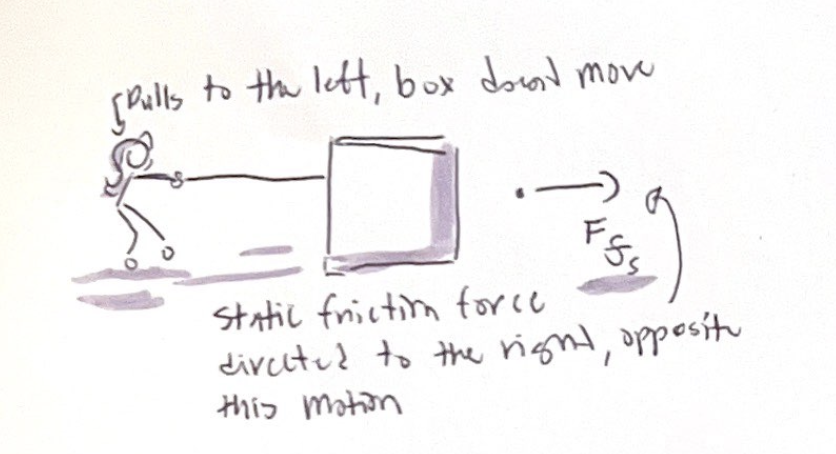 Pulls to the left, box doesn't move
F fs
static friction force
directed to the right, opposite
this motion